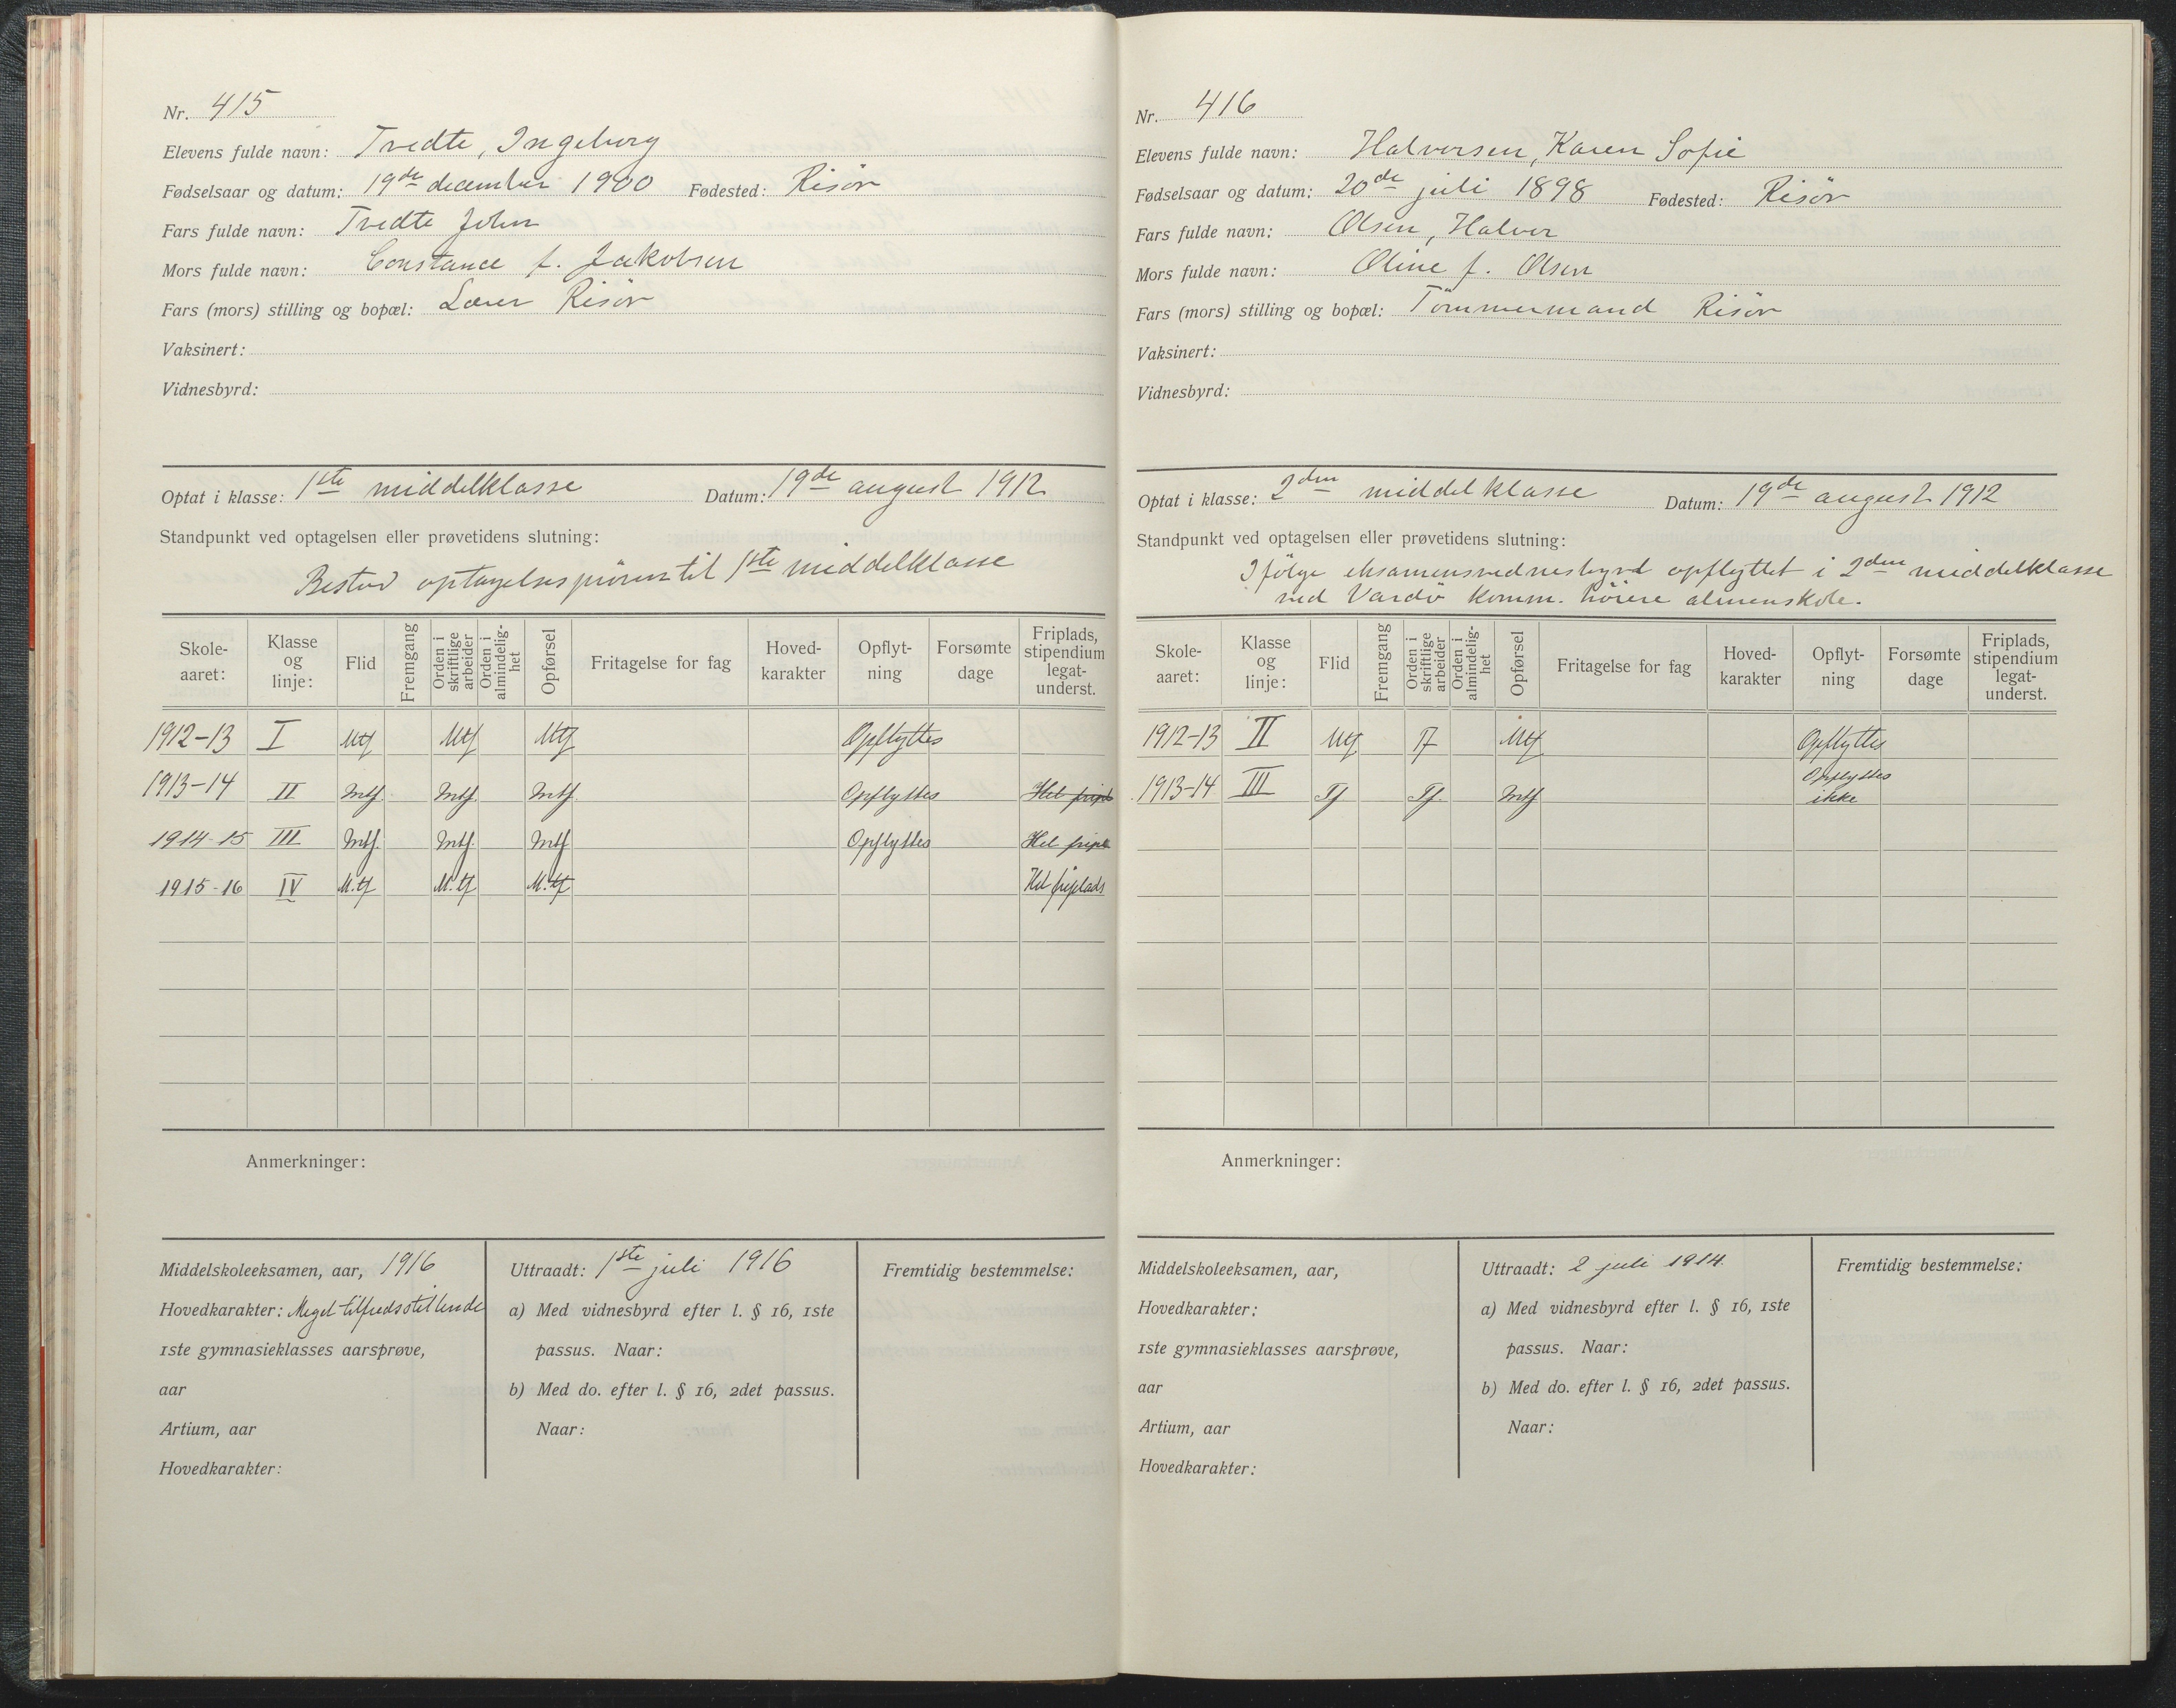 Nr. 415
Elevens fulde navn: Tvedte, Ingeborg
Fødselsaar og datum: 19de december 1900 Fødested: Risör
Fars fulde navn: Tvedte John
Mors fulde navn: Constance f. Jakobsen
Fars (mors) stilling og bopæl: Lærer Risör
Vaksinert:
Vidnesbyrd:
Optat i klasse: 1ste middelklasse Datum: 19de august 1912
Standpunkt ved optagelsen eller prøvetidens slutning:
Bestod optagelsesprøven til 1ste middelklasse
Skole-aaret: Klasse og linje: Flid Fremgang Orden i skriftlige arbeider Orden i almindelig-het Opførsel Fritagelse for fag Hoved-karakter Opflyt-ning Forsømte dage Friplads, stipendium legat-underst.
1912-13 I Mtf Mtf Mtf Opflyttes
1913-14 II Mtf. Mtf. Mtf. Opflyttes Hel fripl
1914-15 III Mtf. Mtf. Mtf Opflyttes Hel fripl
1915-16 IV M.tf M.tf M.tf Hel friplads
Anmerkninger:
Middelskoleeksamen, aar, 1916
Hovedkarakter: Meget tilfredsstillende
1ste gymnasieklasses aarsprøve,
aar
Artium, aar
Hovedkarakter:
Uttraadt: 1ste juli 1916
a) Med vidnesbyrd efter l. § 16, 1ste
passus. Naar:
b) Med do. efter l. § 16, 2det passus.
Naar:
Fremtidig bestemmelse:
Nr. 416
Elevens fulde navn: Halvorsen, Karen Sofie
Fødselsaar og datum: 20de juli 1898 Fødested: Risör
Fars fulde navn: Olsen, Halvor
Mors fulde navn: Oline f. Olsen
Fars (mors) stilling og bopæl: Tömmermand Risör
Vaksinert:
Vidnesbyrd:
Optat i klasse: 2den middelklasse Datum: 19de august 1912
Standpunkt ved optagelsen eller prøvetidens slutning:
Ifølge eksamensvidnesbyrd opflyttet i 2den middelklasse
ved Vardö komm. höiere almenskole.
Skole-aaret: Klasse og linje: Flid Fremgang Orden i skriftlige arbeider Orden i almindelig-het Opførsel Fritagelse for fag Hoved-karakter Opflyt-ning Forsømte dage Friplads, stipendium legat-underst.
1912-13 II Mtf Tf Mtf Opflyttes
1913-14 III Tf Tf. Mtf Opflyttes
ikke
Anmerkninger:
Middelskoleeksamen, aar,
Hovedkarakter:
1ste gymnasieklasses aarsprøve,
aar
Artium, aar
Hovedkarakter:
Uttraadt: 2 juli 1914.
a) Med vidnesbyrd efter l. § 16, 1ste
passus. Naar:
b) Med do. efter l. § 16, 2det passus.
Naar:
Fremtidig bestemmelse: